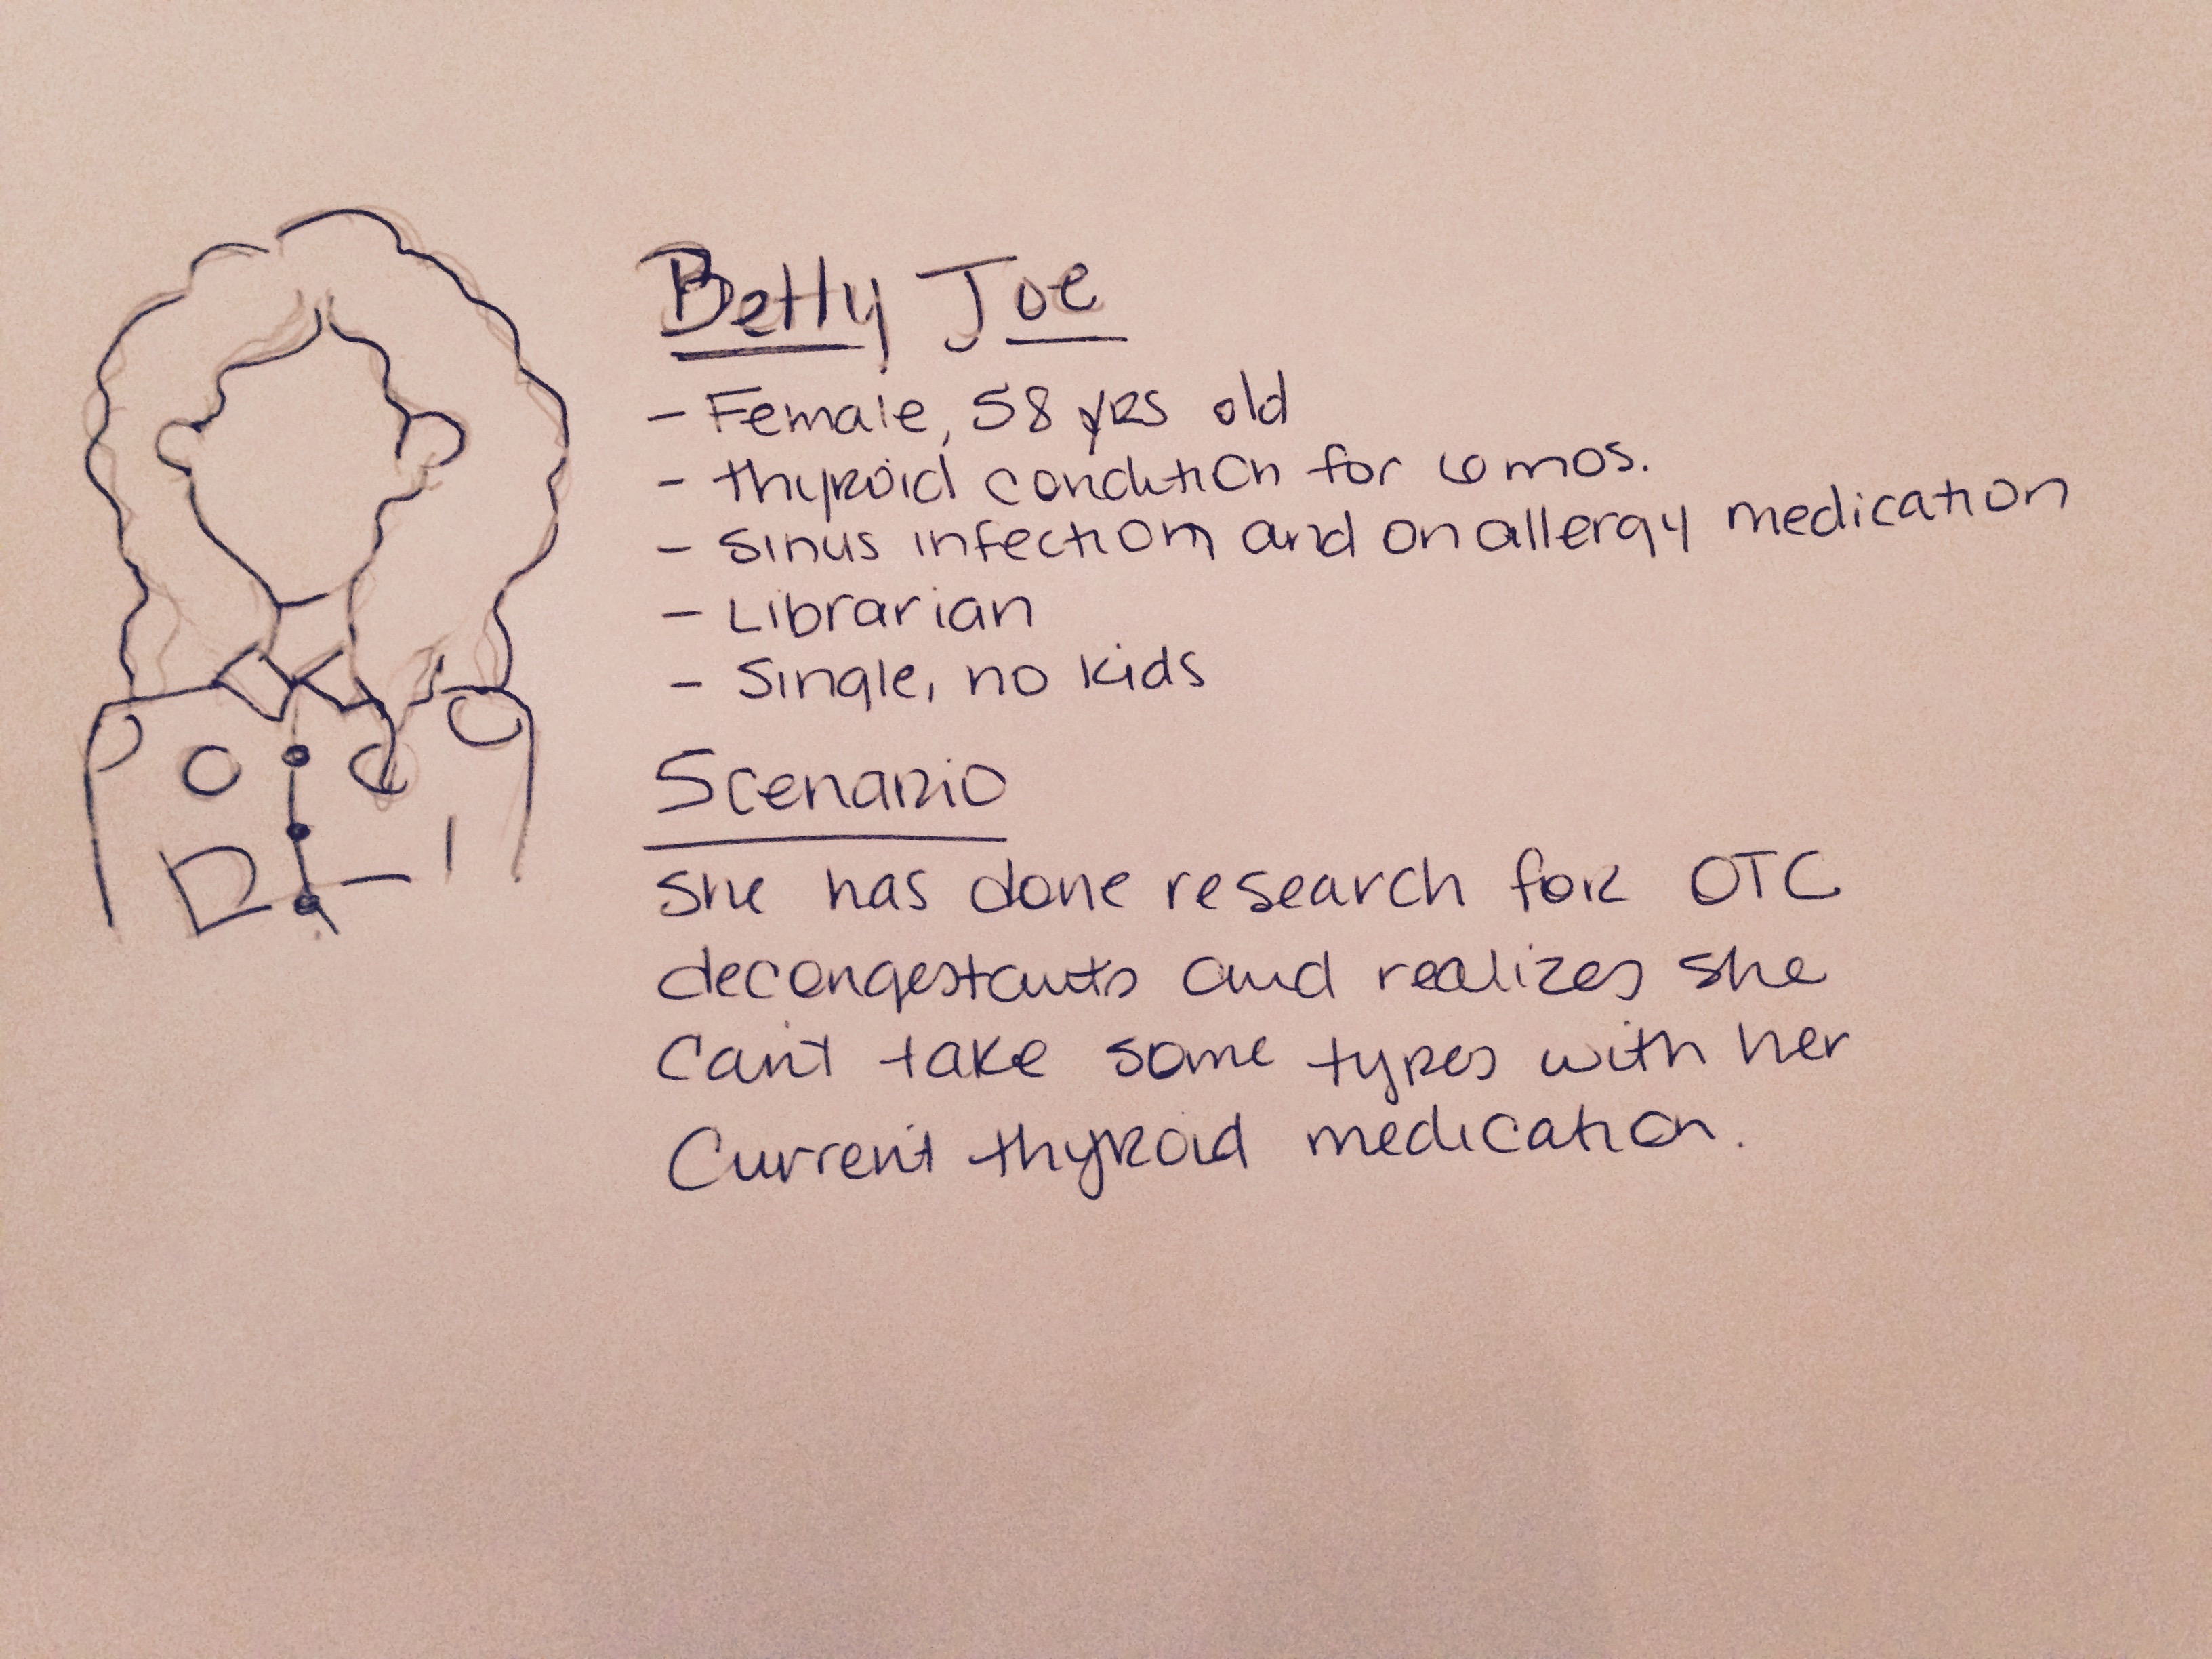 Betty Joe
- Female, 58 yrs old
- thyroid condition for 6 mos.
- sinus infection and on allergy medication
- Librarian
- Single, no kids
Scenario
She has done research for OTC
decongestants and realizes she
can't take some types with her
current thyroid medication.